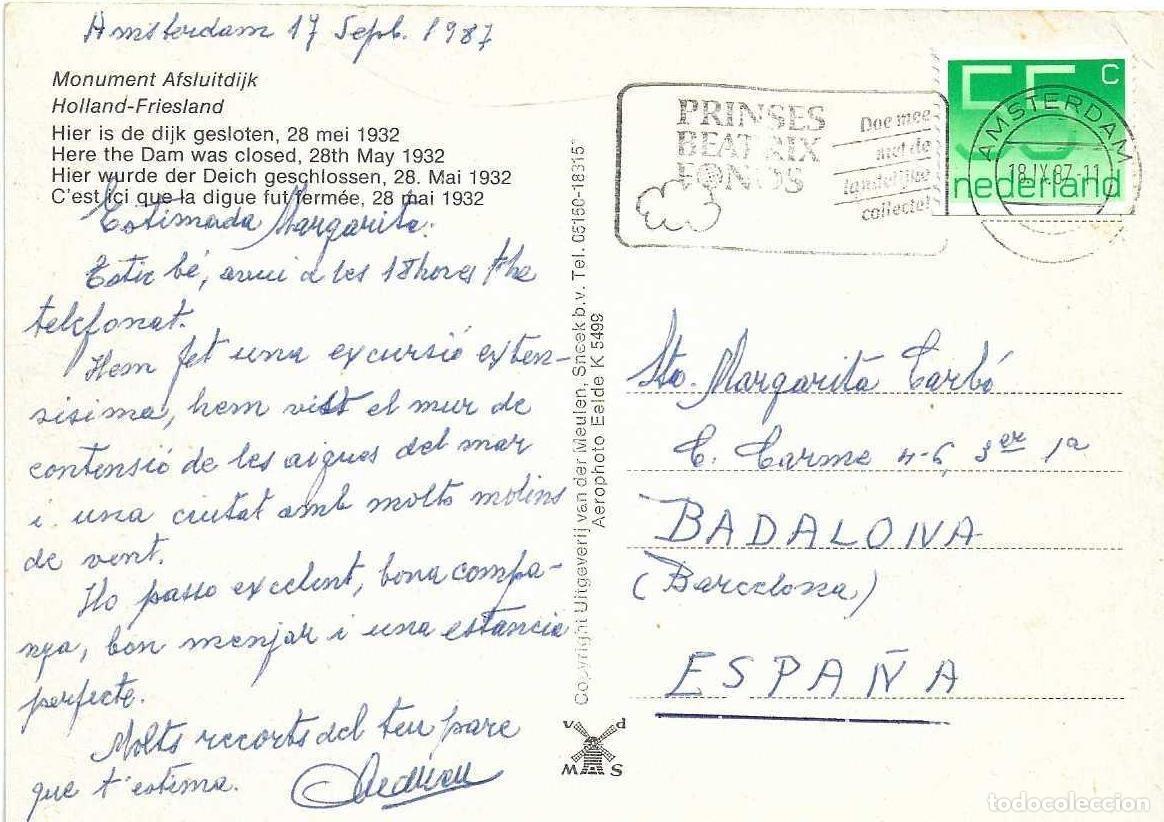 Amsterdam 17 Sept. 1987
Monument Afsluitdijk
Holland-Friesland
Hier is de dijk gesloten, 28 mei 1932
Here the Dam was closed, 28th May 1932
Hier wurde der Deich geschlossen, 28. Mai 1932
C'est ici que la digue fut fermée, 28 mai 1932
Estimada Margarita:
Estic bé, avui a les 18 hores t'he
telefonat.
Hem fet una excursió exten-
sisima, hem vist el mur de
contensió de les aigues del mar
i una ciutat amb molts molins
de vent.
Ho passo excelent, bona compa-
nya, bon menjar i una estancia
perfecte.
Molts recorts del teu pare
que t'estima.
Copyright Uitgeverij van der Meulen, Sneek b.v. Tel. 05150-18315*
Aerophoto Eelde K 5499
v d
M S
PRINSES
BEATRIX
FONDS
Doe mee
met de
landelijke
collecte!
55 C
nederland
AMSTERDAM
18.IX.87.-11
Sta. Margarita Carbó
C. Carme 4-6, 3er 1a
BADALONA
(Barcelona)
ESPAÑA
todocoleccion